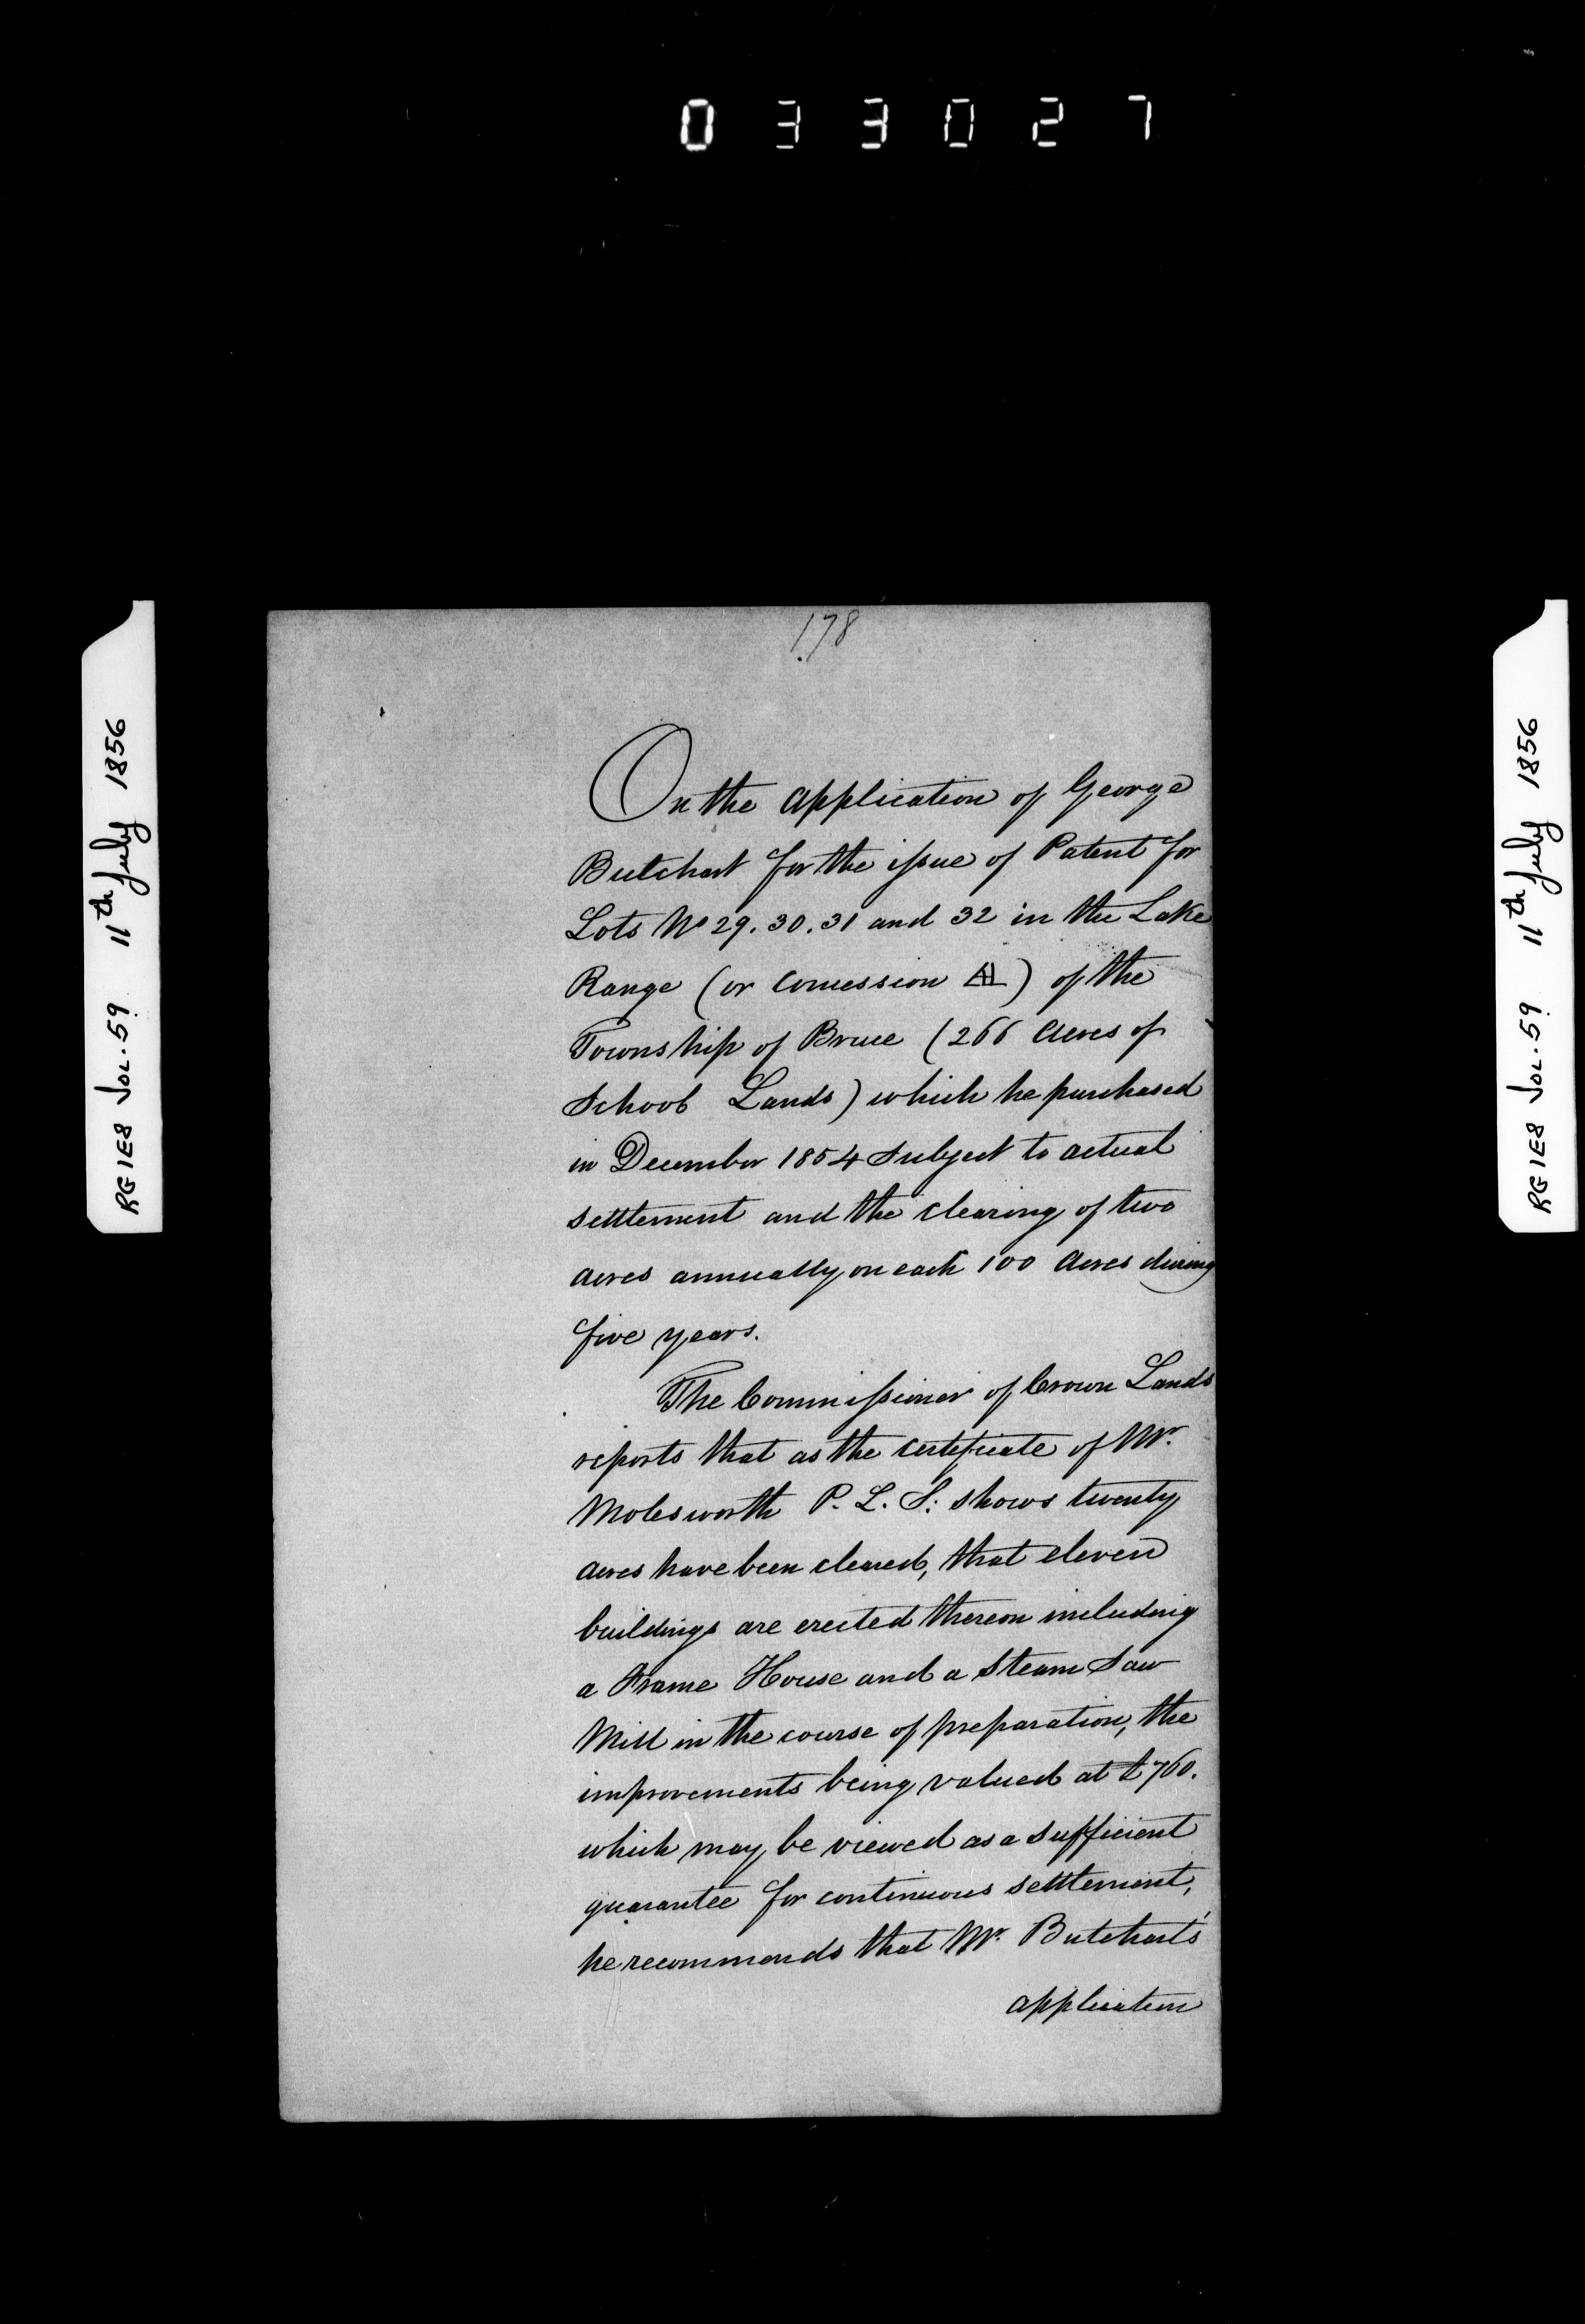 033027
RG 1 E8 VOL. 59 11th July 1856
178
On the Application of George
Butchart for the issue of Patent for
Lots No 29. 30. 31 and 32 in the Lake
Range (or Concession A) of the
Township of Bruce (266 Acres of
School Lands) which he purchased
in December 1854 subject to actual
settlement and the clearing of two
acres annually on each 100 Acres during
five years.
The Commissioner of Crown Lands
reports that as the certificate of Mr.
Molesworth P. L. S: shows twenty
acres have been cleared, that eleven
buildings are erected thereon including
a Frame House and a Steam Saw
Mill in the course of preparation, the
improvements being valued at £760.
which may be viewed as a sufficient
guarantee for continuous settlement,
he recommends that Mr. Butchart's
application
RG 1 E8 VOL. 59 11th July 1856